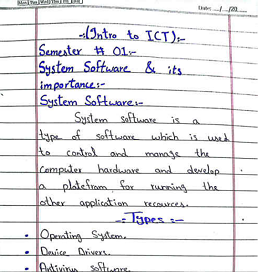 Date: __/__/20__
-:(Intro to ICT):-
Semester # 01:-
System Software & its
importance:-
System Software:-
System software is a
type of software which is used
to control and manage the
computer hardware and develop
a platefrom for running the
other application recources.
-:Types:-
• Operating System.
• Device Drivers.
• Antivirus software.